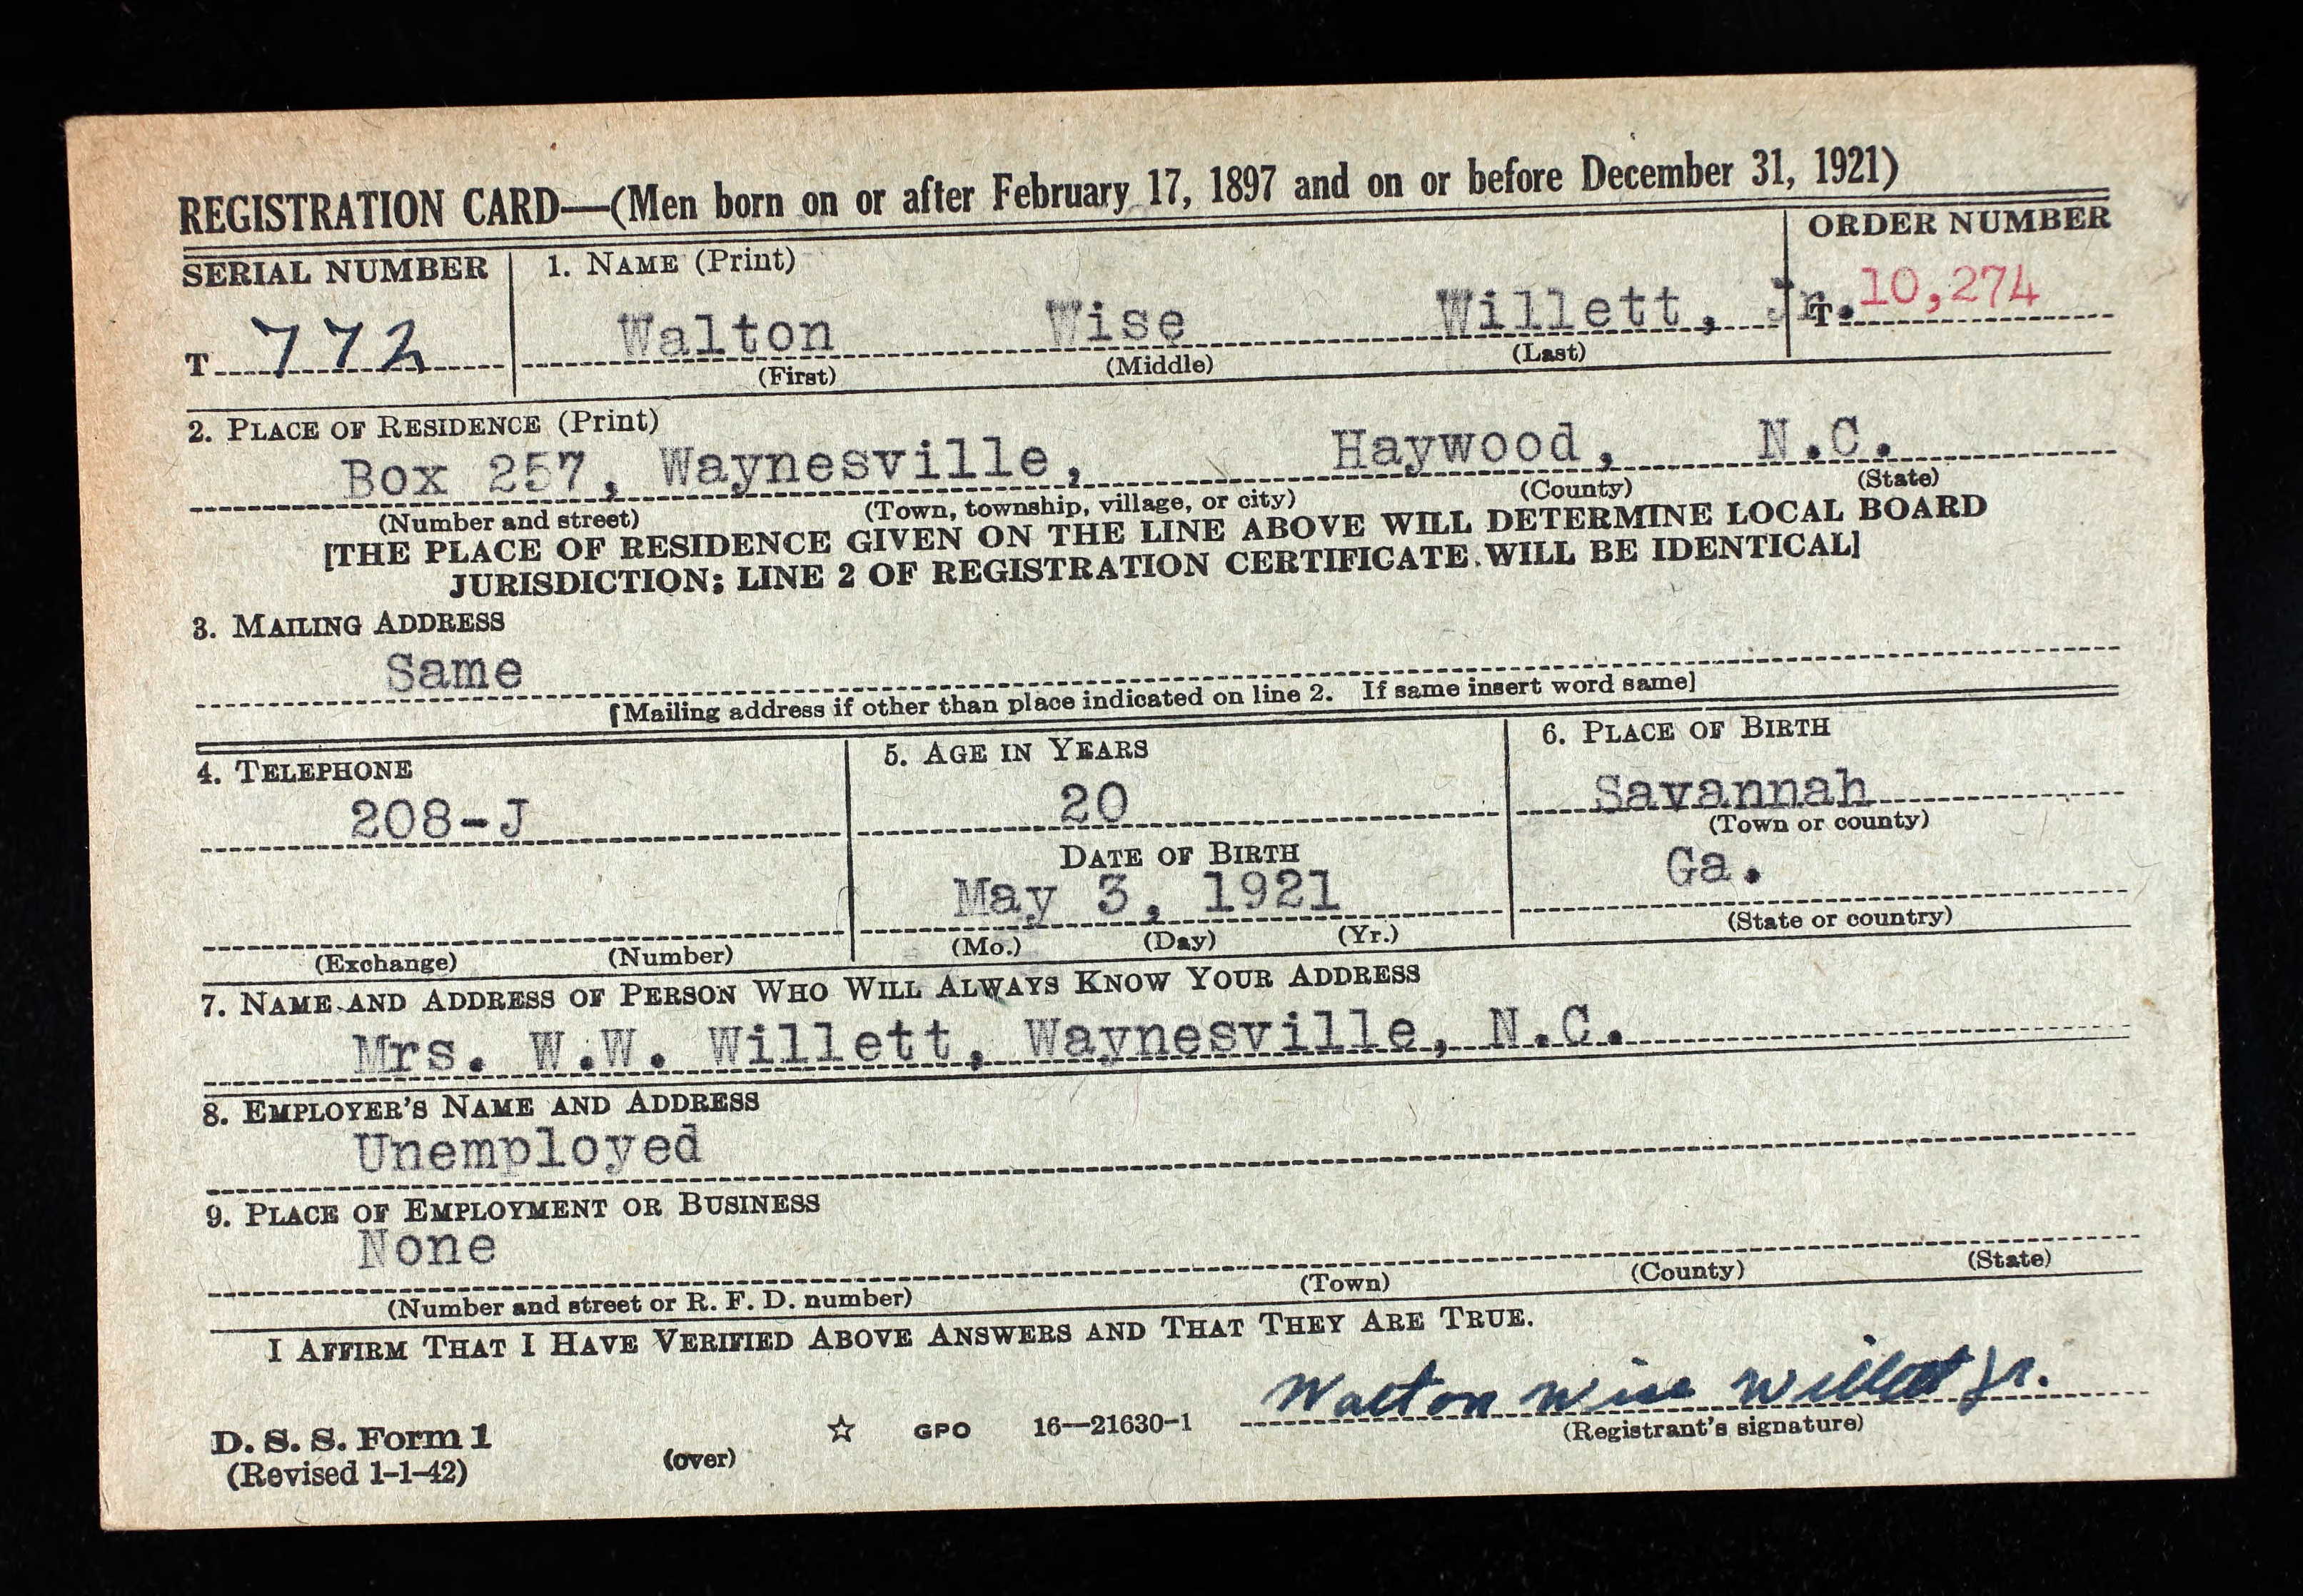 REGISTRATION CARD—(Men born on or after February 17, 1897 and on or before December 31, 1921)
SERIAL NUMBER
1. NAME (Print)
ORDER NUMBER
T 772
Walton Wise Willett, Jr.
T 10,274
(First) (Middle) (Last)
2. PLACE OF RESIDENCE (Print)
Box 257, Waynesville, Haywood, N.C.
(Number and street) (Town, township, village, or city) (County) (State)
[THE PLACE OF RESIDENCE GIVEN ON THE LINE ABOVE WILL DETERMINE LOCAL BOARD
JURISDICTION; LINE 2 OF REGISTRATION CERTIFICATE WILL BE IDENTICAL]
3. MAILING ADDRESS
Same
[Mailing address if other than place indicated on line 2. If same insert word same]
4. TELEPHONE
208-J
(Exchange) (Number)
5. AGE IN YEARS
20
DATE OF BIRTH
May 3, 1921
(Mo.) (Day) (Yr.)
6. PLACE OF BIRTH
Savannah
(Town or county)
Ga.
(State or country)
7. NAME AND ADDRESS OF PERSON WHO WILL ALWAYS KNOW YOUR ADDRESS
Mrs. W.W. Willett, Waynesville, N.C.
8. EMPLOYER'S NAME AND ADDRESS
Unemployed
9. PLACE OF EMPLOYMENT OR BUSINESS
None
(Number and street or R. F. D. number) (Town) (County) (State)
I AFFIRM THAT I HAVE VERIFIED ABOVE ANSWERS AND THAT THEY ARE TRUE.
Walton Wise Willett Jr.
(Registrant's signature)
D. S. S. Form 1
(Revised 1-1-42)
(over)
☆ GPO 16—21630-1